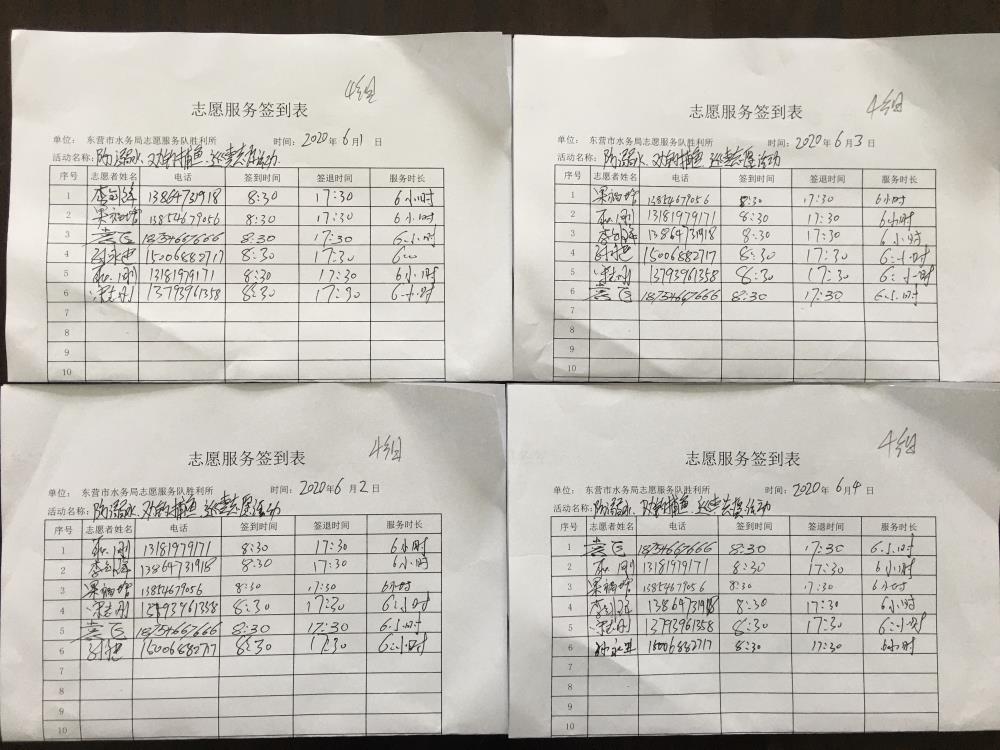 4组
志愿服务签到表
单位： 东营市水务局志愿服务队胜利所 时间：2020年6月1日
活动名称：防溺水、对射捕鱼、巡查志愿活动.
序号 志愿者姓名 电话 签到时间 签退时间 服务时长
1 13864731918 8:30 17:30 6小时
2 13854679056 8:30 17:30 6小时
3 18754667666 8:30 17:30 6小时
4 15006882717 8:30 17:30
5 13181979171 8:30 17:30 6小时
6 13793961358 8:30 17:30 6小时
7
8
9
10
4组
志愿服务签到表
单位： 东营市水务局志愿服务队胜利所 时间：2020年6月3日
活动名称：防溺水、对射捕鱼、巡查志愿活动
序号 志愿者姓名 电话 签到时间 签退时间 服务时长
1 13854679056 8:30 17:30 6小时
2 13181979171 8:30 17:30 6小时
3 13864731918 8:30 17:30 6小时
4 15006882717 8:30 17:30 6小时
5 13793961358 8:30 17:30 6小时
6 18754667666 8:30 17:30 6小时
7
8
9
10
4组
志愿服务签到表
单位： 东营市水务局志愿服务队胜利所 时间：2020年6月2日
活动名称：防溺水、对射捕鱼、巡查志愿活动
序号 志愿者姓名 电话 签到时间 签退时间 服务时长
1 13181979171 8:30 17:30 6小时
2 13864731918 8:30 17:30 6小时
3 13854679056 8:30 17:30 6小时
4 13793961358 8:30 17:30 6小时
5 18754667666 8:30 17:30 6小时
6 15006882717 8:30 17:30 6小时
7
8
9
10
4组
志愿服务签到表
单位： 东营市水务局志愿服务队胜利所 时间：2020年6月4日
活动名称：防溺水、对射捕鱼、巡查志愿活动
序号 志愿者姓名 电话 签到时间 签退时间 服务时长
1 18754667666 8:30 17:30 6小时
2 13181979171 8:30 17:30 6小时
3 13854679056 8:30 17:30 6小时
4 13864731918 8:30 17:30 6小时
5 13793961358 8:30 17:30 6小时
6 15006882717 8:30 17:30 6小时
7
8
9
10